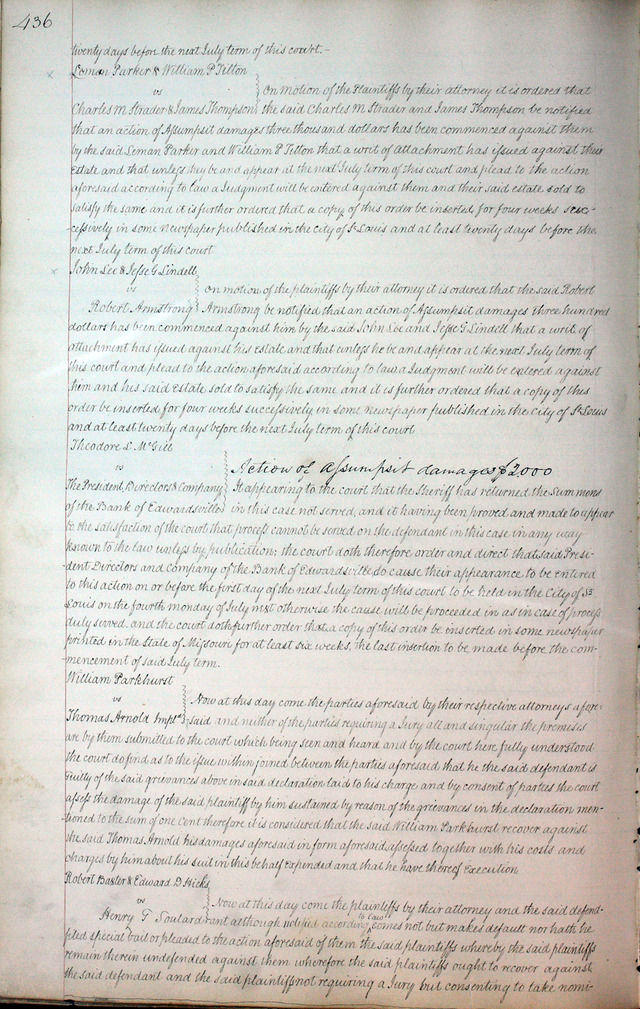 436
twenty days before the next July term of this court.-
Leman Parker & William P Tilton
vs On Motion of the Plaintiffs by their attorney it is ordered that
Charles M Strader & James Thompson the said Charles M Strader and James Thompson be notified
that an action of Assumpsit damages three thousand dollars has been commenced against them
by the said Leman Parker and William P Tilton that a writ of attachment has issued against their
Estate and that unless they be and appear at the next July term of this court and plead to the action
aforesaid according to law a Judgment will be entered against them and their said estate sold to
satisfy the same and it is further ordered that a copy of this order be inserted for four weeks suc-
cessively in some newspaper published in the city of St Louis and at least twenty days before the
next July term of this court
John Lee & Jesse G Lindell
vs On motion of the plaintiffs by their attorney it is ordered that the said Robert
Robert Armstrong Armstrong be notified that an action of Assumpsit damages three hundred
dollars has been commenced against him by the said John Lee and Jesse G Lindell that a writ of
attachment has issued against his estate and that unless he be and appear at the next July term of
this court and plead to the action aforesaid according to law a Judgment will be entered against
him and his said Estate sold to satisfy the same and it is further ordered that a copy of this
order be inserted for four weeks successively in some newspaper published in the city of St Louis
and at least twenty days before the next July term of this court
Theodore L McGill
vs Action of Assumpsit damages $2,000
The President, Directors & Company It appearing to the court that the Sheriff has returned the Summons
of the Bank of Edwardsville in this case not served, and it having been proved and made to appear
to the satisfaction of the court that process cannot be served on the defendant in this case in any way
known to the law unless by publication; the court doth therefore order and direct that said Presi-
dent Directors and Company of the Bank of Edwardsville do cause their appearance to be entered
to this action on or before the first day of the next July term of this court to be held in the City of St
Louis on the fourth monday of July next otherwise the cause will be proceeded in as in case of process
duly served. and the court doth further order that a copy of this order be inserted in some newspaper
printed in the State of Missouri for at least six weeks, the last insertion to be made before the com-
mencement of said July term.
William Parkhurst
vs Now at this day come the parties aforesaid by their respective attorneys afore-
Thomas Arnold Impld said and neither of the parties requiring a Jury all and singular the premises
are by them submitted to the court which being seen and heard and by the court here fully understood
the court do find as to the issue within joined between the parties aforesaid that he the said defendant is
Guilty of the said grievances above in said declaration laid to his charge and by consent of parties the court
assess the damage of the said plaintiff by him sustained by reason of the grievances in the declaration men-
tioned to the sum of one Cent therefore it is considered that the said William Parkhurst recover against
the said Thomas Arnold his damages aforesaid in form aforesaid assessed together with his costs and
charges by him about his suit in this behalf Expended and that he have thereof Execution
Robert Baster & Edward D Hicks
vs Now at this day come the plaintiffs by their attorney and the said defend-
Henry T Soulard ant although notified according to law comes not but makes default nor hath he
pled special bail or pleaded to the action aforesaid of them the said plaintiffs whereby the said plaintiffs
remain therein undefended against them wherefore the said plaintiffs ought to recover against
the said defendant and the said plaintiffs not requiring a Jury but consenting to take nomi-